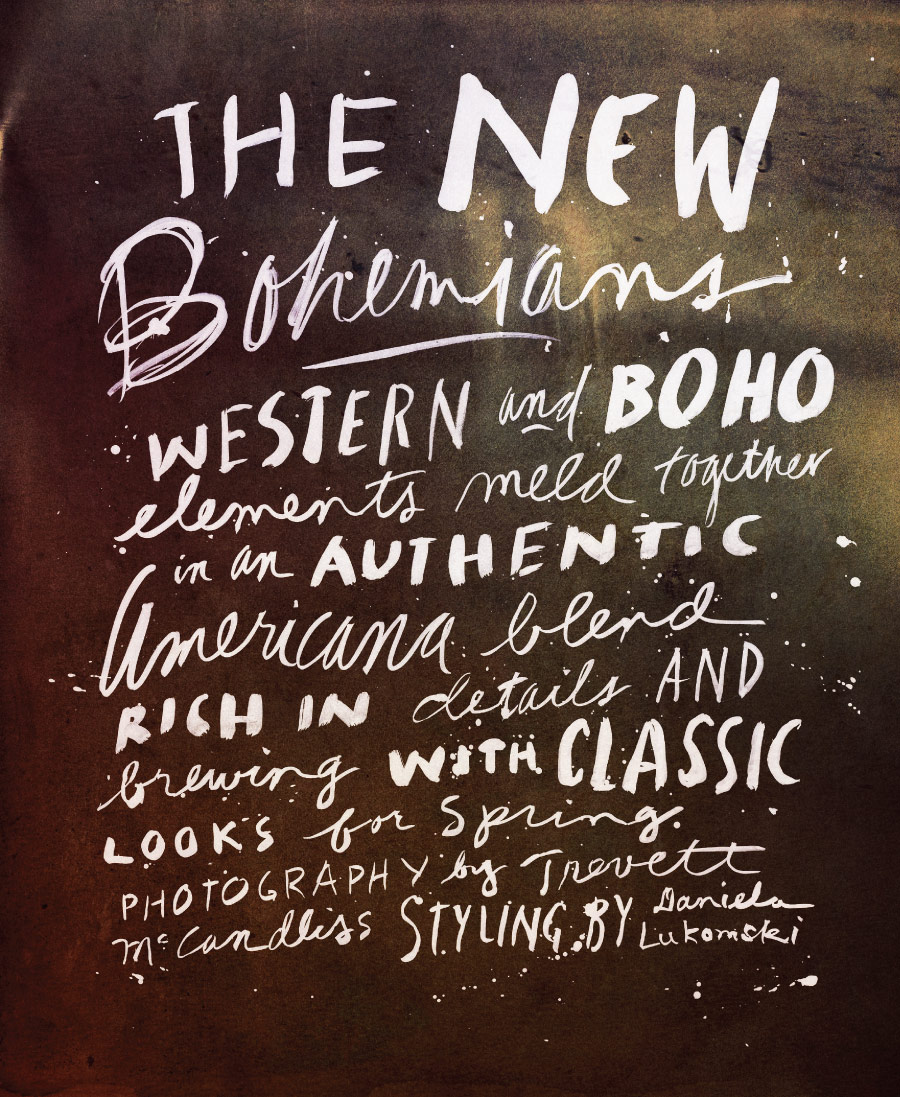 THE NEW
Bohemians
WESTERN and BOHO
elements meld together
in an AUTHENTIC
Americana blend
RICH IN details AND
brewing WITH CLASSIC
LOOKS for Spring.
PHOTOGRAPHY by Trevett
McCandliss STYLING BY Daniela
Lukomski